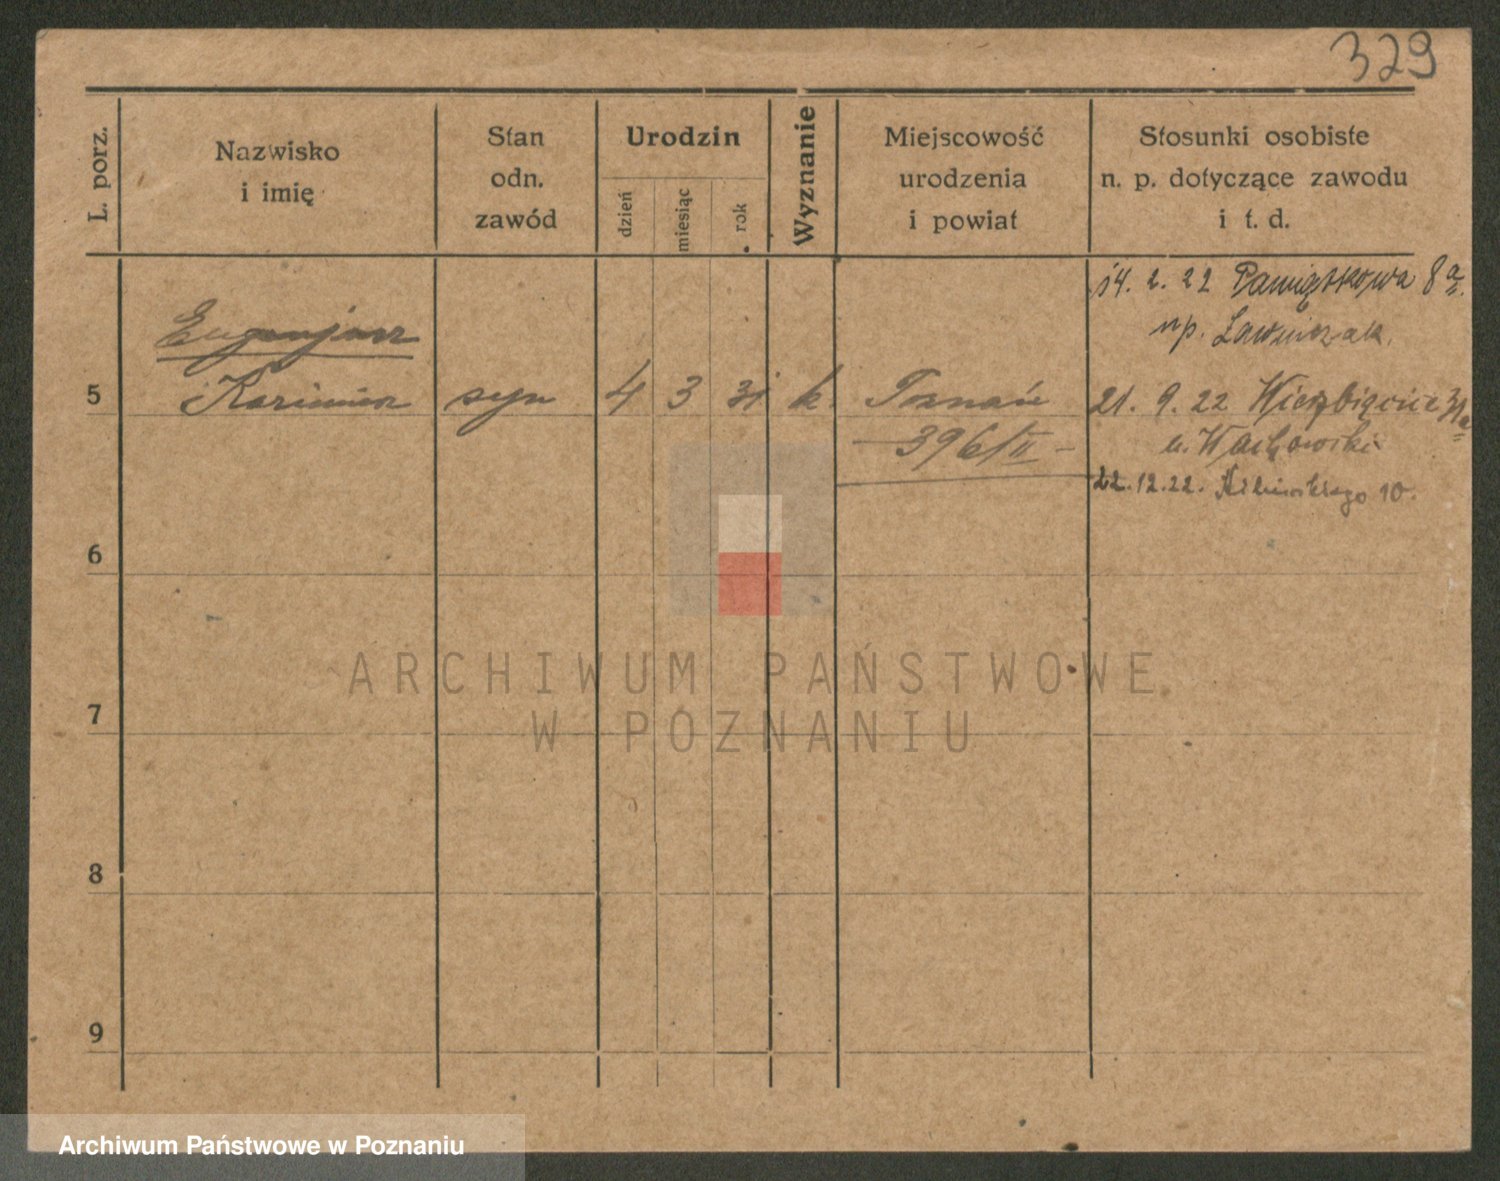 329
L. porz.
Nazwisko
i imię
Stan
odn.
zawód
Urodzin
dzień
miesiąc
rok
Wyznanie
Miejscowość
urodzenia
i powiat
Stosunki osobiste
n. p. dotyczące zawodu
i t. d.
14. 2. 22 Pamiątkowa 8a.
np. Ławniczak.
5
Kazimierz
syn
4
3
31
k.
Poznań
21. 9. 22 Wierzbięcice 31a
396/II -
u. Wachowski
22.12.22. 10.
6
7
8
9
ARCHIWUM PAŃSTWOWE
W POZNANIU
Archiwum Państwowe w Poznaniu